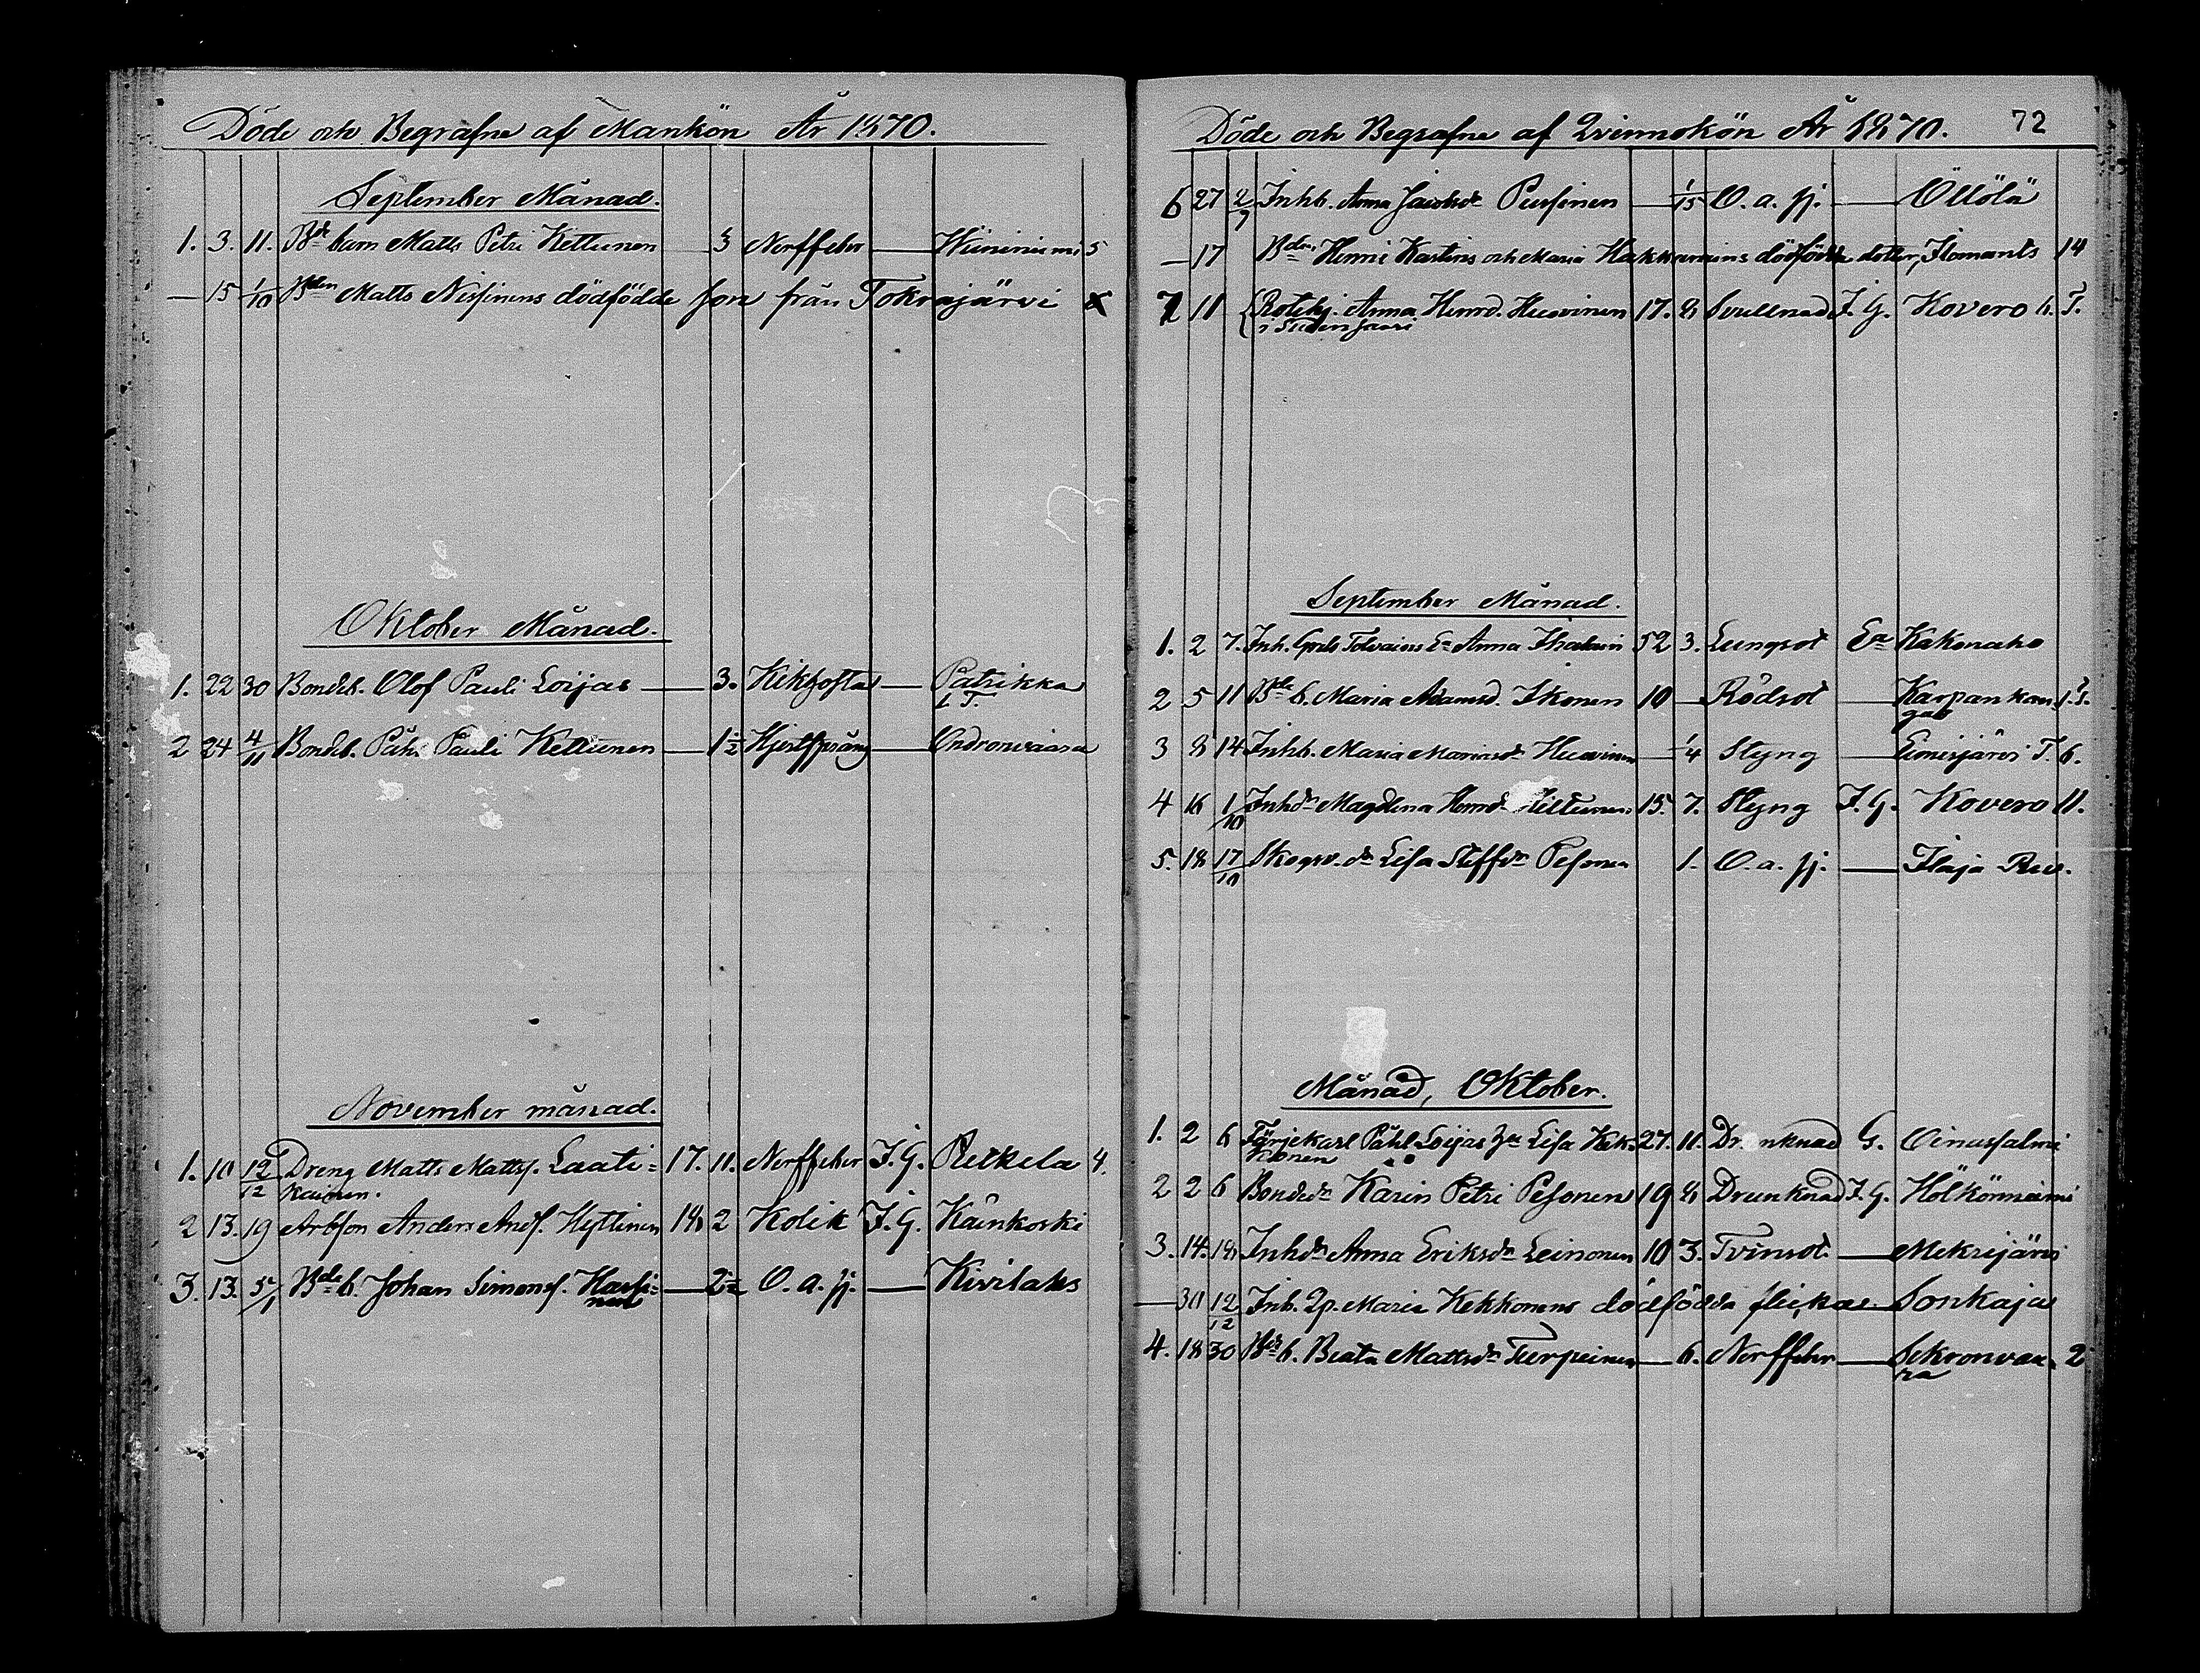 Döde och Begrafne af Mankön År 1870.
September Månad.
1. 3. 11. Bde barn Matts Petri Kettunen — 3 Nerffeber — Hiininiemi 5
— 15 1/10 Bden Matts Nissinens dödfödde son från Tokrajärvi
Oktober Månad.
1. 22 30 Bondeb. Olof Pauli Loijas — 3. Kikhosta — Patrikka
L T.
2 24 4/11 Bondeb. Påhl Pauli Kettunen — 1 1/2 Hjertsprång — Ondronvaara
November månad.
1. 10 12/12 Dreng Matts Matts. Laati=
kainen. 17. 11. Nerffeber I. G. Putkela 4.
2 13. 19 Arbson Anders Ands. Hyttinen 18 2 Kolik I. G. Käinkoski
3. 13. 5/1 Bde b. Johan Simons. Hassi=
nen — 2 1/2 O. a. sj. — Kivilaks
Döde och Begrafne af Qvinnokön År 1870. 72
6 27 2/9 Inhb. Anna Jacobsdr Pussinen — 1/15 O. a. sj. — Öllölä
— 17 Bdens Henric Kastins och Maria Hakkarains dödfödde dotter, Ilomants 14
7 11 Rotehj. Anna Henrd. Huovinen 17. 8 Svullnad I. G. Kovero 6. T.
i Sudensaari
September Månad.
1. 2 7. Inh. Tolvains Ea Anna Ihalain 52 3. Lungsot Ea Kakonaho
2 5 11 Bde b. Maria Adamsd. Ikonen 10 — Rödsot — Karpankan-
gas 1. T.
3 8 14 Inhb. Maria Mariasdr Huovinen — 1/4 Styng — Limijärvi T. 6.
4 16 1/10 Inhdr Magdlena Henrd. Kiltunen 15. 7. Styng I. G. Kovero 11.
5. 18 17/10 Skogsv. dr Lisa Steffdr Pesonen 1. O. a. sj. — Ilaja Ruv.
Månad, Oktober.
1. 2 6 Färjekarl Påhl Loijas hu Lisa Kek-
konen 27. 11. Drunknad G. Oinassalmi
2 2 6 Bondedr Karin Petri Pesonen 19 8 Drunknad I. G. Hölkönniemi
3. 14. 18 Inhdr Anna Eriksdr Leinonen 10 3. Tvinsot — Mekrijärvi
— 30 12/12 Inh. Qp. Maria Kekkonens dödfödda flicka — Sonkaja
4. 18 30 Bde b. Beata Mattsdr Turpeinen — 6. Nerffeber — Sikronvaa-
ra 2